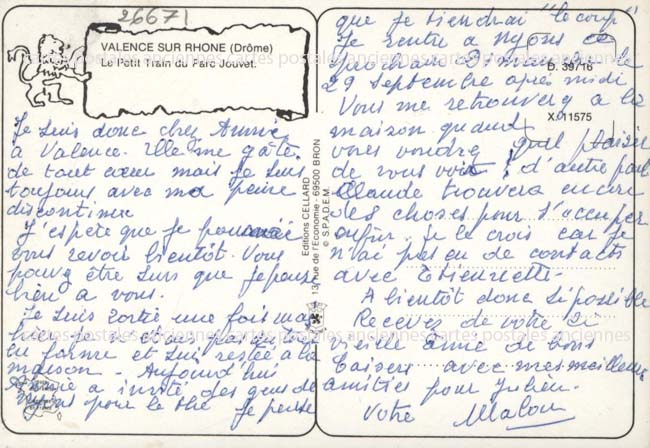 26671
VALENCE SUR RHONE (Drôme)
Le Petit Train du Parc Jouvet.
Je suis donc chez Annie
à Valence. Elle me gâte
de tout cœur mais je suis
toujours avec ma peine
discontinue
J'espère que je pourrai
vous revoir bientôt. Vous
pouvez être surs que je pense
bien à vous.
Je suis sortie une fois ma
je pas
forme et suis restée à la
maison - Aujourd'hui
Annie a invité des gens de
Nyons pour le thé je pense
Editions CELLARD
13, rue de l'Economie - 69500 BRON
© S.P.A.D.E.M.
que je tiendrai "le coup"
Je rentre à Nyons ce
prochain dimanche le
29 Septembre après midi
D. 39/16
Vous me retrouverez à la
X 11575
maison quand
vous voudrez quel plaisir
de vous voir ! d'autre part
Claude trouvera encore
des choses pour s'occuper
enfin je le crois car je
n'ai pas eu de contacts
avec Etiennette.
A bientôt donc si possible
Recevez de votre
vieille amie de bons
baisers avec mes meilleures
amitiés pour Julien.
Votre Malou
cartes postales anciennes